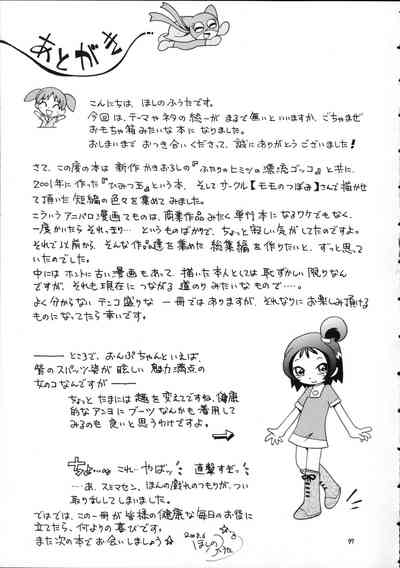 あとがき
こんにちは、ほしのふうたです。
今回は、テーマやネタの統一がまるで無いといいますか、ごちゃまぜ
おもちゃ箱みたいな本になりました。
おしまいまでおつき合いくださって、誠にありがとうございました!
さて、この度の本は新作かきおろしの『ふたりのヒミツの漂流ゴッコ』と共に、
2001年に作った『ひみつ玉』という本、そしてサークル【モモのつぼみ】さんで描かせ
て頂いた短編の色々を集めてみました。
こういうアニパロ漫画てものは、商業作品みたく単行本になるワケでもなく、
一度かいたらそれっきり…というものばかりで、ちょっと寂しい気がしてたのですよ。
それで以前から、そんな作品達を集めた総集編を作りたいと、ずっと思って
いたのでした。
中にはホントに古い漫画もあって、描いた本人としては恥ずかしい限りなん
ですが、それも現在につながる道のりみたいなもので…。
よく分からないテンコ盛りな一冊ではありますが、それなりにお楽しみ頂ける
ものになってたら幸いです。
ところで、おんぷちゃんといえば、
皆のスパッツ姿が眩しい魅力満点
の女のコなんですが
ちょっとたまには趣を変えてですね、健康
的なアンヨにブーツなんかも着用して
みるのも良いと思うわけですよ。
ちょ…っ これ…やばッ 直撃すぎッ
…あ、スミマセン、ほんの戯れのつもりが、つい
取り乱してしまいました。
ではでは、この一冊が皆様の健康な毎日のお役に
立てたら、何よりの喜びです。
また次の本でお会いしましょう☆
ほしのふうた
97